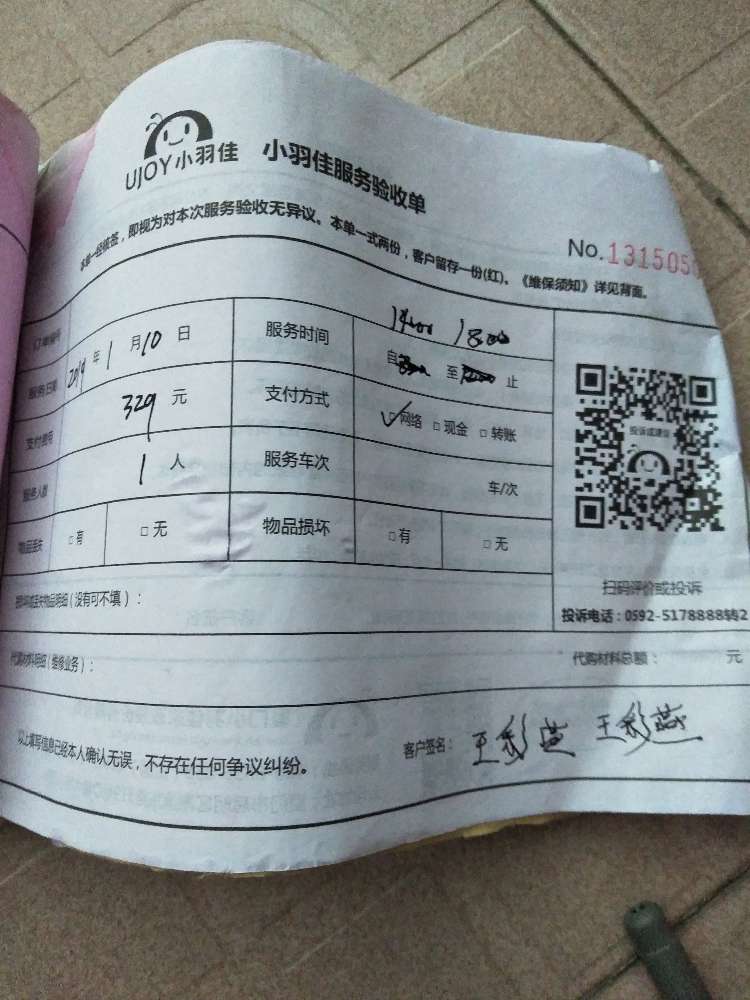 UJOY小羽佳 小羽佳服务验收单
本单一经核签，即视为对本次服务验收无异议。本单一式两份，客户留存一份(红)。《维保须知》详见背面。
No.131505
订单编号
服务日期 2019 年 1 月 10 日 服务时间 14:00 18:00 自 至 止
支付费用 329 元 支付方式 ☑网络 □现金 □转账
服务人数 1 人 服务车次 车/次
物品丢失 □有 □无 物品损坏 □有 □无
投诉或建议
扫码评价或投诉
投诉电话：0592-5178888转2
损坏或丢失物品明细（没有可不填）：
代购材料明细（维修业务）： 代购材料总额： 元
以上填写信息已经本人确认无误，不存在任何争议纠纷。 客户签名： 王彩燕 王彩燕